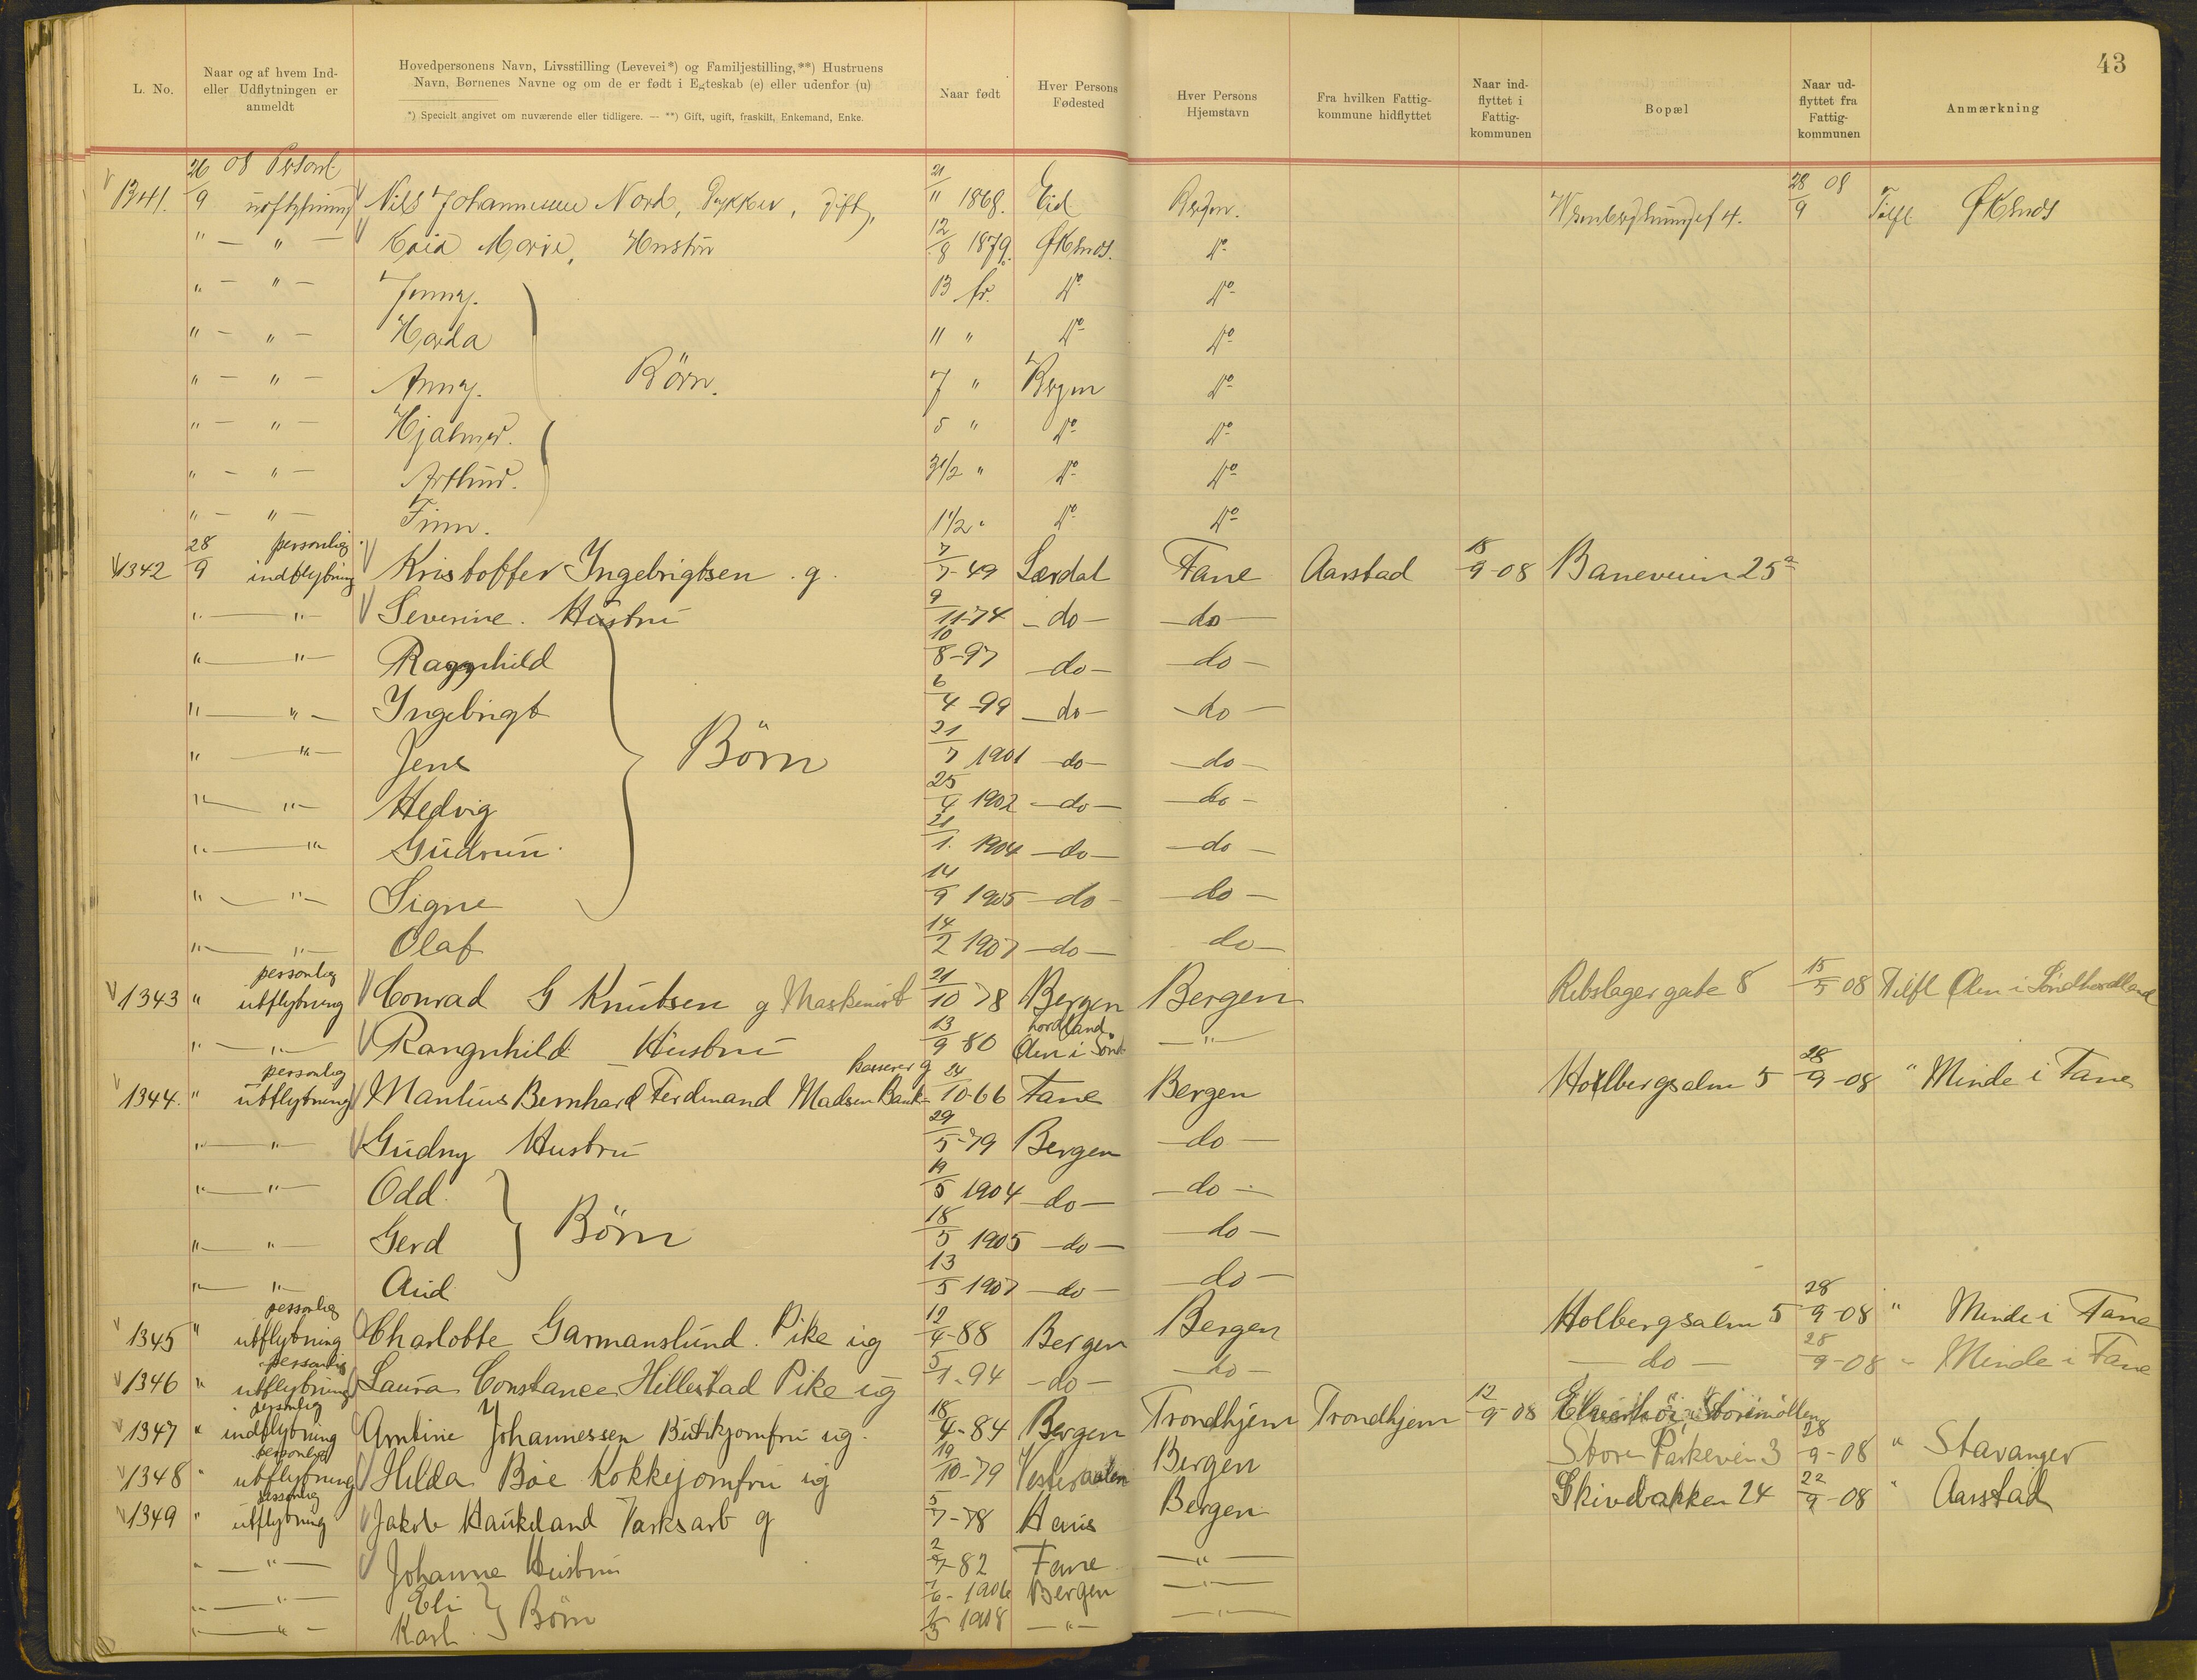 43
L. No.
Naar og af hvem Ind- eller Udflytningen er anmeldt
Hovedpersonens Navn, Livsstilling (Levevei*) og Familjestilling,**) Hustruens Navn, Børnenes Navne og om de er født i Egteskab (e) eller udenfor (u)
*) Specielt angivet om nuværende eller tidligere. — **) Gift, ugift, fraskilt, Enkemand, Enke.
Naar født
Hver Persons Fødested
Hver Persons Hjemstavn
Fra hvilken Fattigkommune hidflyttet
Naar indflyttet i Fattigkommunen
Bopæl
Naar udflyttet fra Fattigkommunen
Anmærkning
1341. 26/9 08 Personl. Nils Johannesen Nord, Dykker, gift, 21/11 1868. Eid Bergen. 4. 28/9 08 Tilfl Øksnes
" — " — Kaia Marie, Hustru 12/8 1879. Øksnes. do
" — " — Jenny. 13 år. do do
" — " — Harda 11 " do do
" — " — Anny. Börn. 7 " Bergen do
" — " — Hjalmar. 5 " do do
" — " — Arthur. 3 1/2 " do do
" — " — Finn. 1 1/2 " do do
1342 28/9 personlig indflytning Kristoffer Ingebrigtsen. g. 7/7-49 Lærdal Fane Aarstad 15/9-08 Baneveien 25a
" — " Severine. Hustru 9/11-74 — do — — do —
" — " — Ragnhild 10/8-97 — do — — do —
" — " — Ingebrigt 6/4-99 — do — — do —
" — " — Jens Börn 21/7 1901 — do — — do —
" — " — Hedvig 25/4 1902 — do — — do —
" — " Gudrun. 21/1. 1904 — do — — do —
" — " — Signe 14/9 1905 — do — — do —
" — " — Olaf 14/2 1907 — do — do —
1343 " personlig utflytning Conrad G Knutsen g Maskinist 21/10 78 Bergen Bergen Rebslagergate 8 15/5 08 Tilfl Ølen i Søndhordland
" — " — Rangnhild Hustru 13/9 80 Ølen i Sönd-hordland — " —
1344. " personlig utflytning Mantius Bernhard Ferdinand Madsen Bank-kasserer g 24/10-66 Fane Bergen Holbergsalm 5 28/9-08 " Minde i Fane
" — " Gudny Hustru 29/5-79 Bergen — do —
" — " — Odd. 19/5 1904 — do — — do —
" — " Gerd Börn 18/5 1905 — do — — do —
" — " — Aud 13/5 1907 — do — — do —
1345 " personlig utflytning Charlotte Garmanslund. Pike ug 12/4-88 Bergen Bergen Holbergsalm 5 28/9-08 " Minde i Fane
1346 " personlig utflytning Laura Constance Hillestad Pike ug 5/1-94 — do — — do — — do — 28/9-08 " Minde i Fane
1347 " personlig indflytning Amtine Johannessen Butikjomfru ug. 18/4-84 Bergen Trondhjem Trondhjem 12/9-08 Storemöllen
1348 " personlig utflytning Hilda Böe Kokkejomfru ug 19/10-79 Vesteraalen Bergen Store Parkevei 3 28/9-08 " Stavanger
1349 " personlig utflytning Jakob Haukeland Varksarb g 5/7-78 Haus Bergen Skivebakken 24 22/9-08 " Aarstad
" — " — Johanne Hustru 2/7-82 Fane — " —
" — " — Eli Börn 1/6-1906 Bergen — " —
" — " — Karl. 1/3 1908 — " — — " —